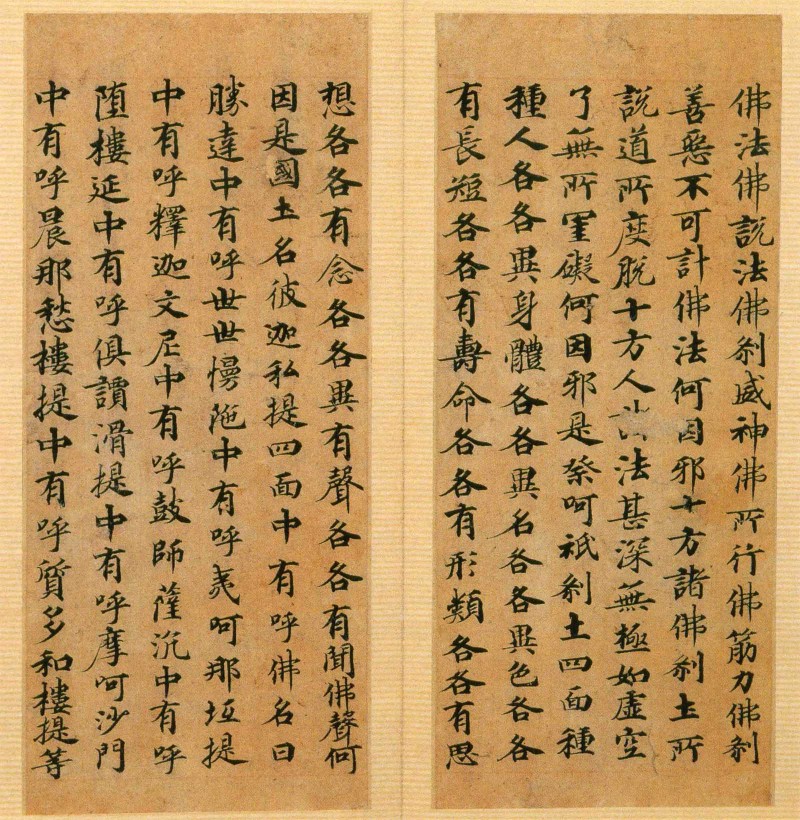 佛法佛説法佛刹威神佛所行佛筋力佛刹
善惡不可計佛法何因邪十方諸佛刹土所
説道所度脱十方人法甚深無極如虛空
了無所罣礙何因邪是桼呵祇刹土四面種
種人各各異身體各各異名各各異色各各
有長短各各有壽命各各有形類各各有思
想各各有念各各異有聲各各有聞佛聲何
因是國土名彼迦私提四面中有呼佛名曰
勝達中有呼世世慢陁中有呼夷呵那坘提
中有呼釋迦文尼中有呼鼓師薩沉中有呼
堕樓延中有呼俱譚滑提中有呼摩呵沙門
中有呼晨那愁樓提中有呼質多和樓提等